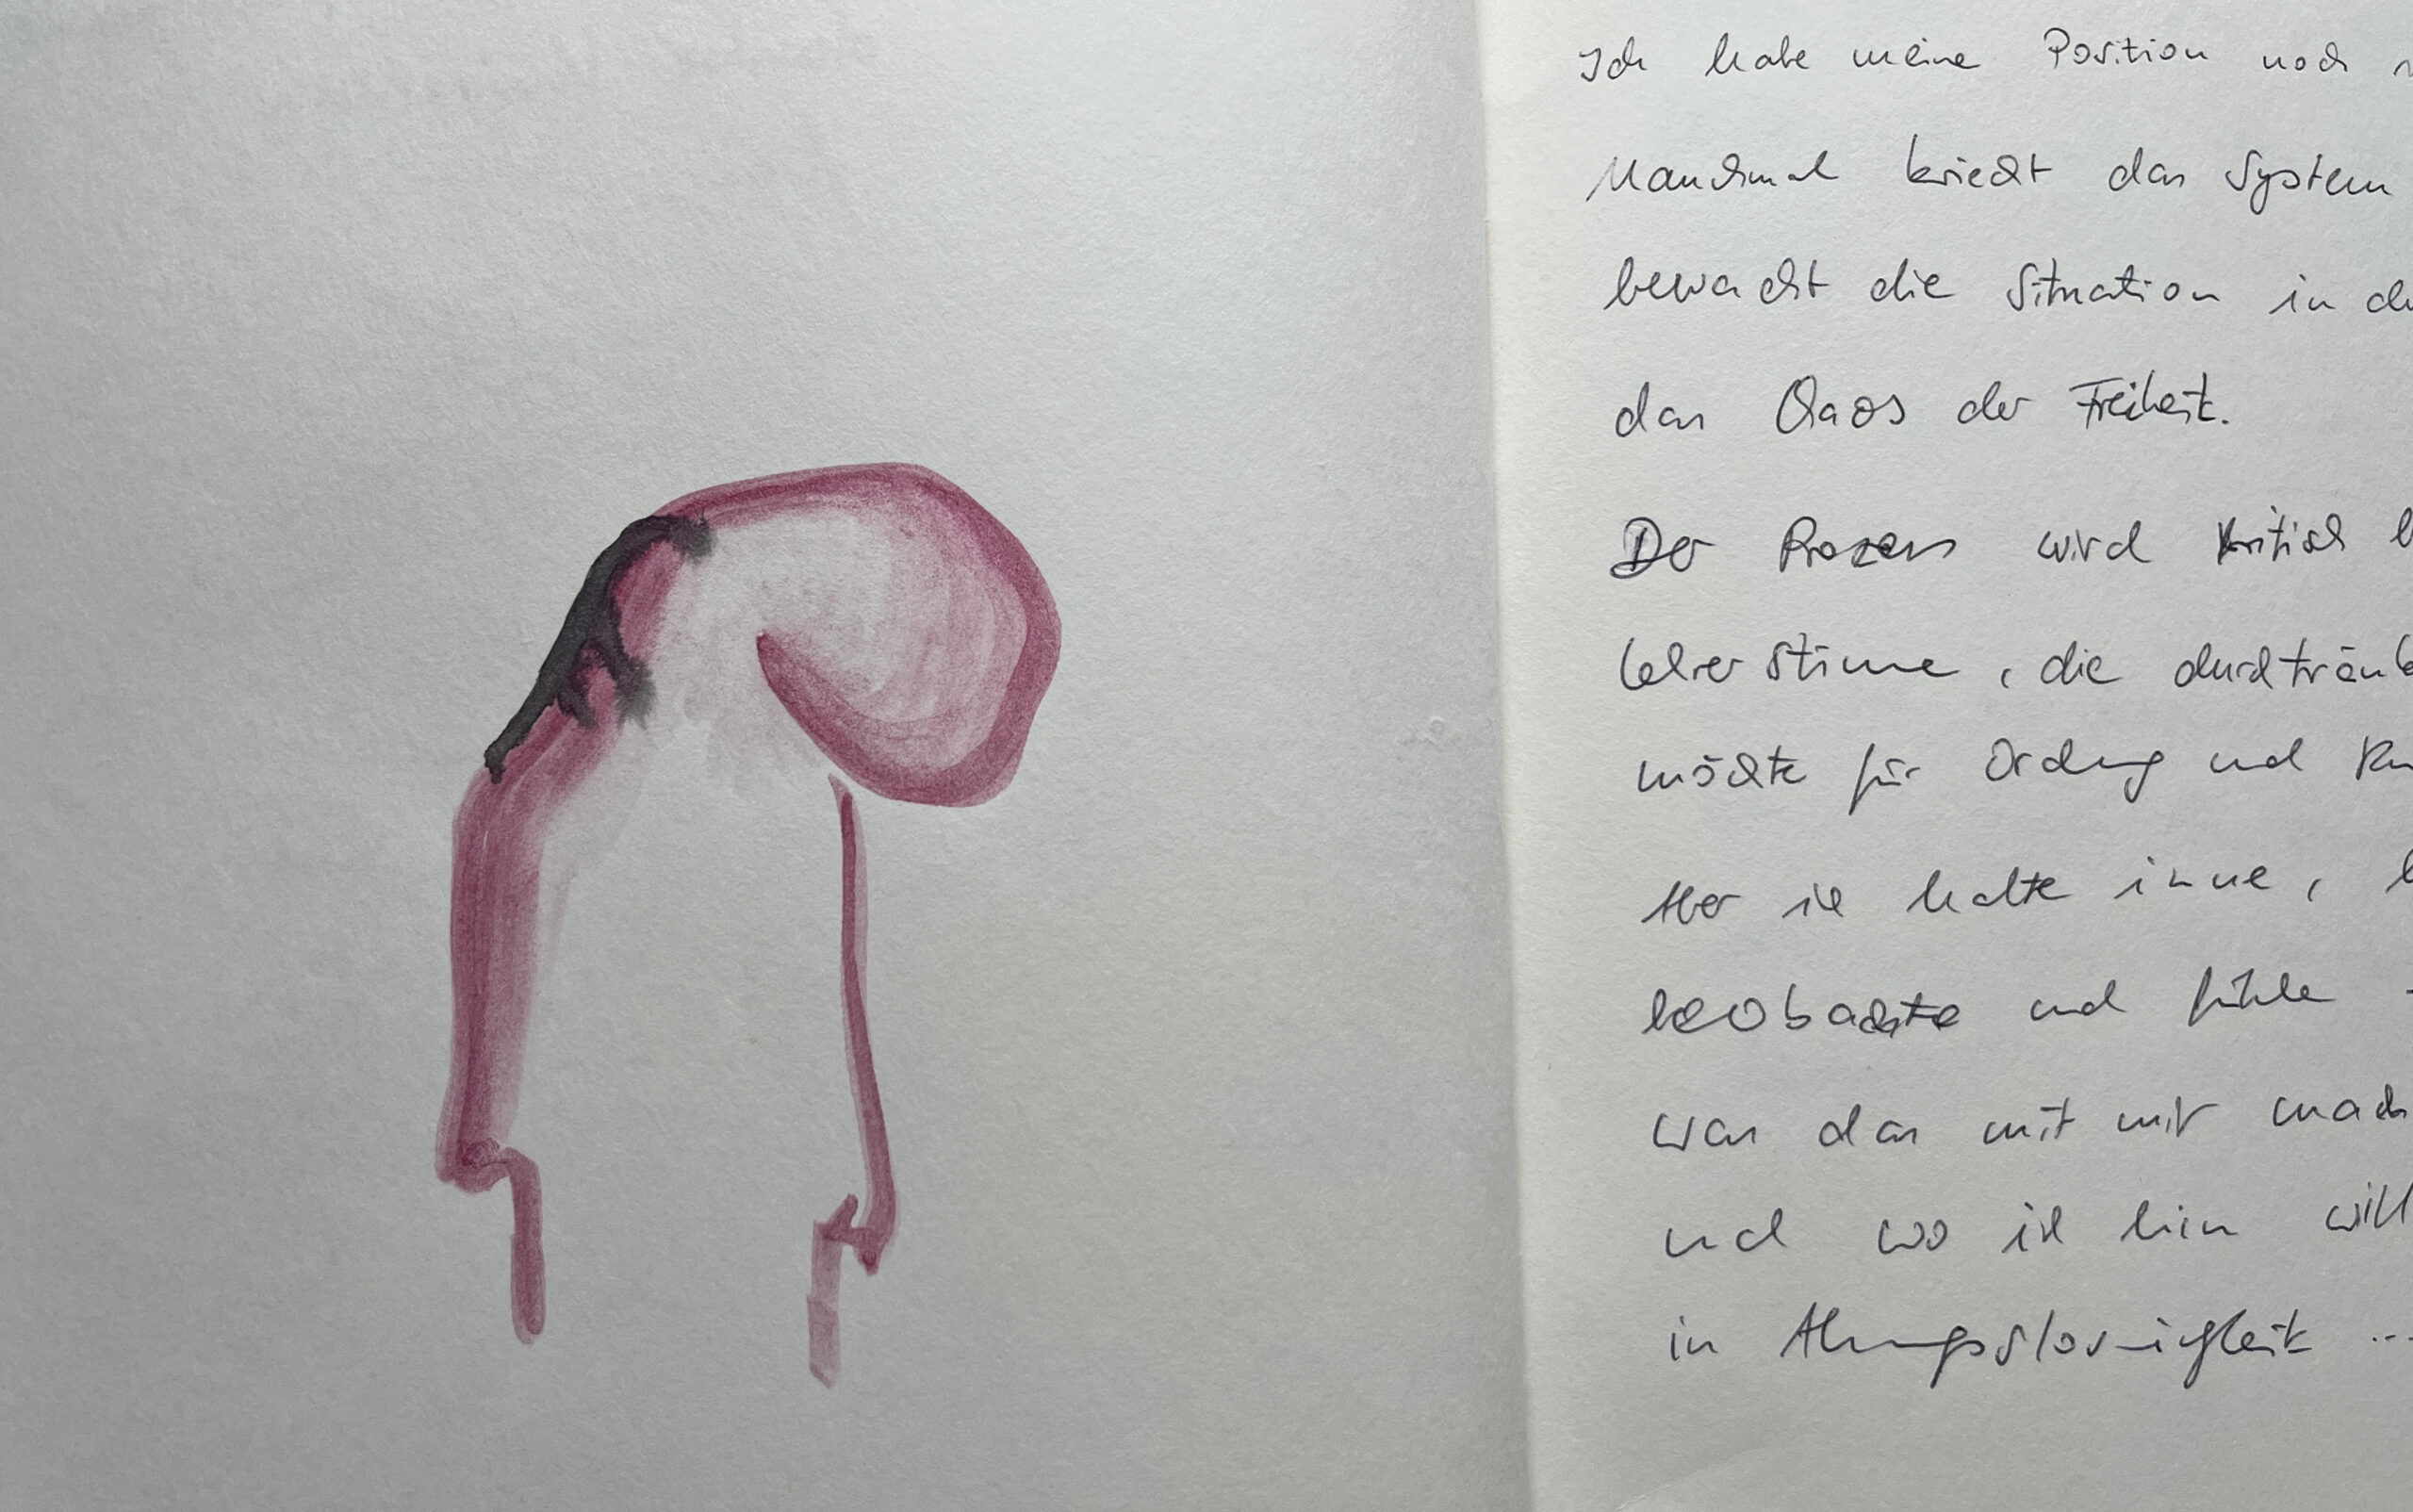 Ich habe meine Position noch
Manchmal kriecht das System
bewacht die Situation in
das Chaos der Freiheit.
Der Prozess wird kritisch
die durchtränk
möchte für Ordnung und
Aber ich halte inne,
beobachte und fühle
was das mit mir mach
und wo ich hin will
in Ahnungslosigkeit ...